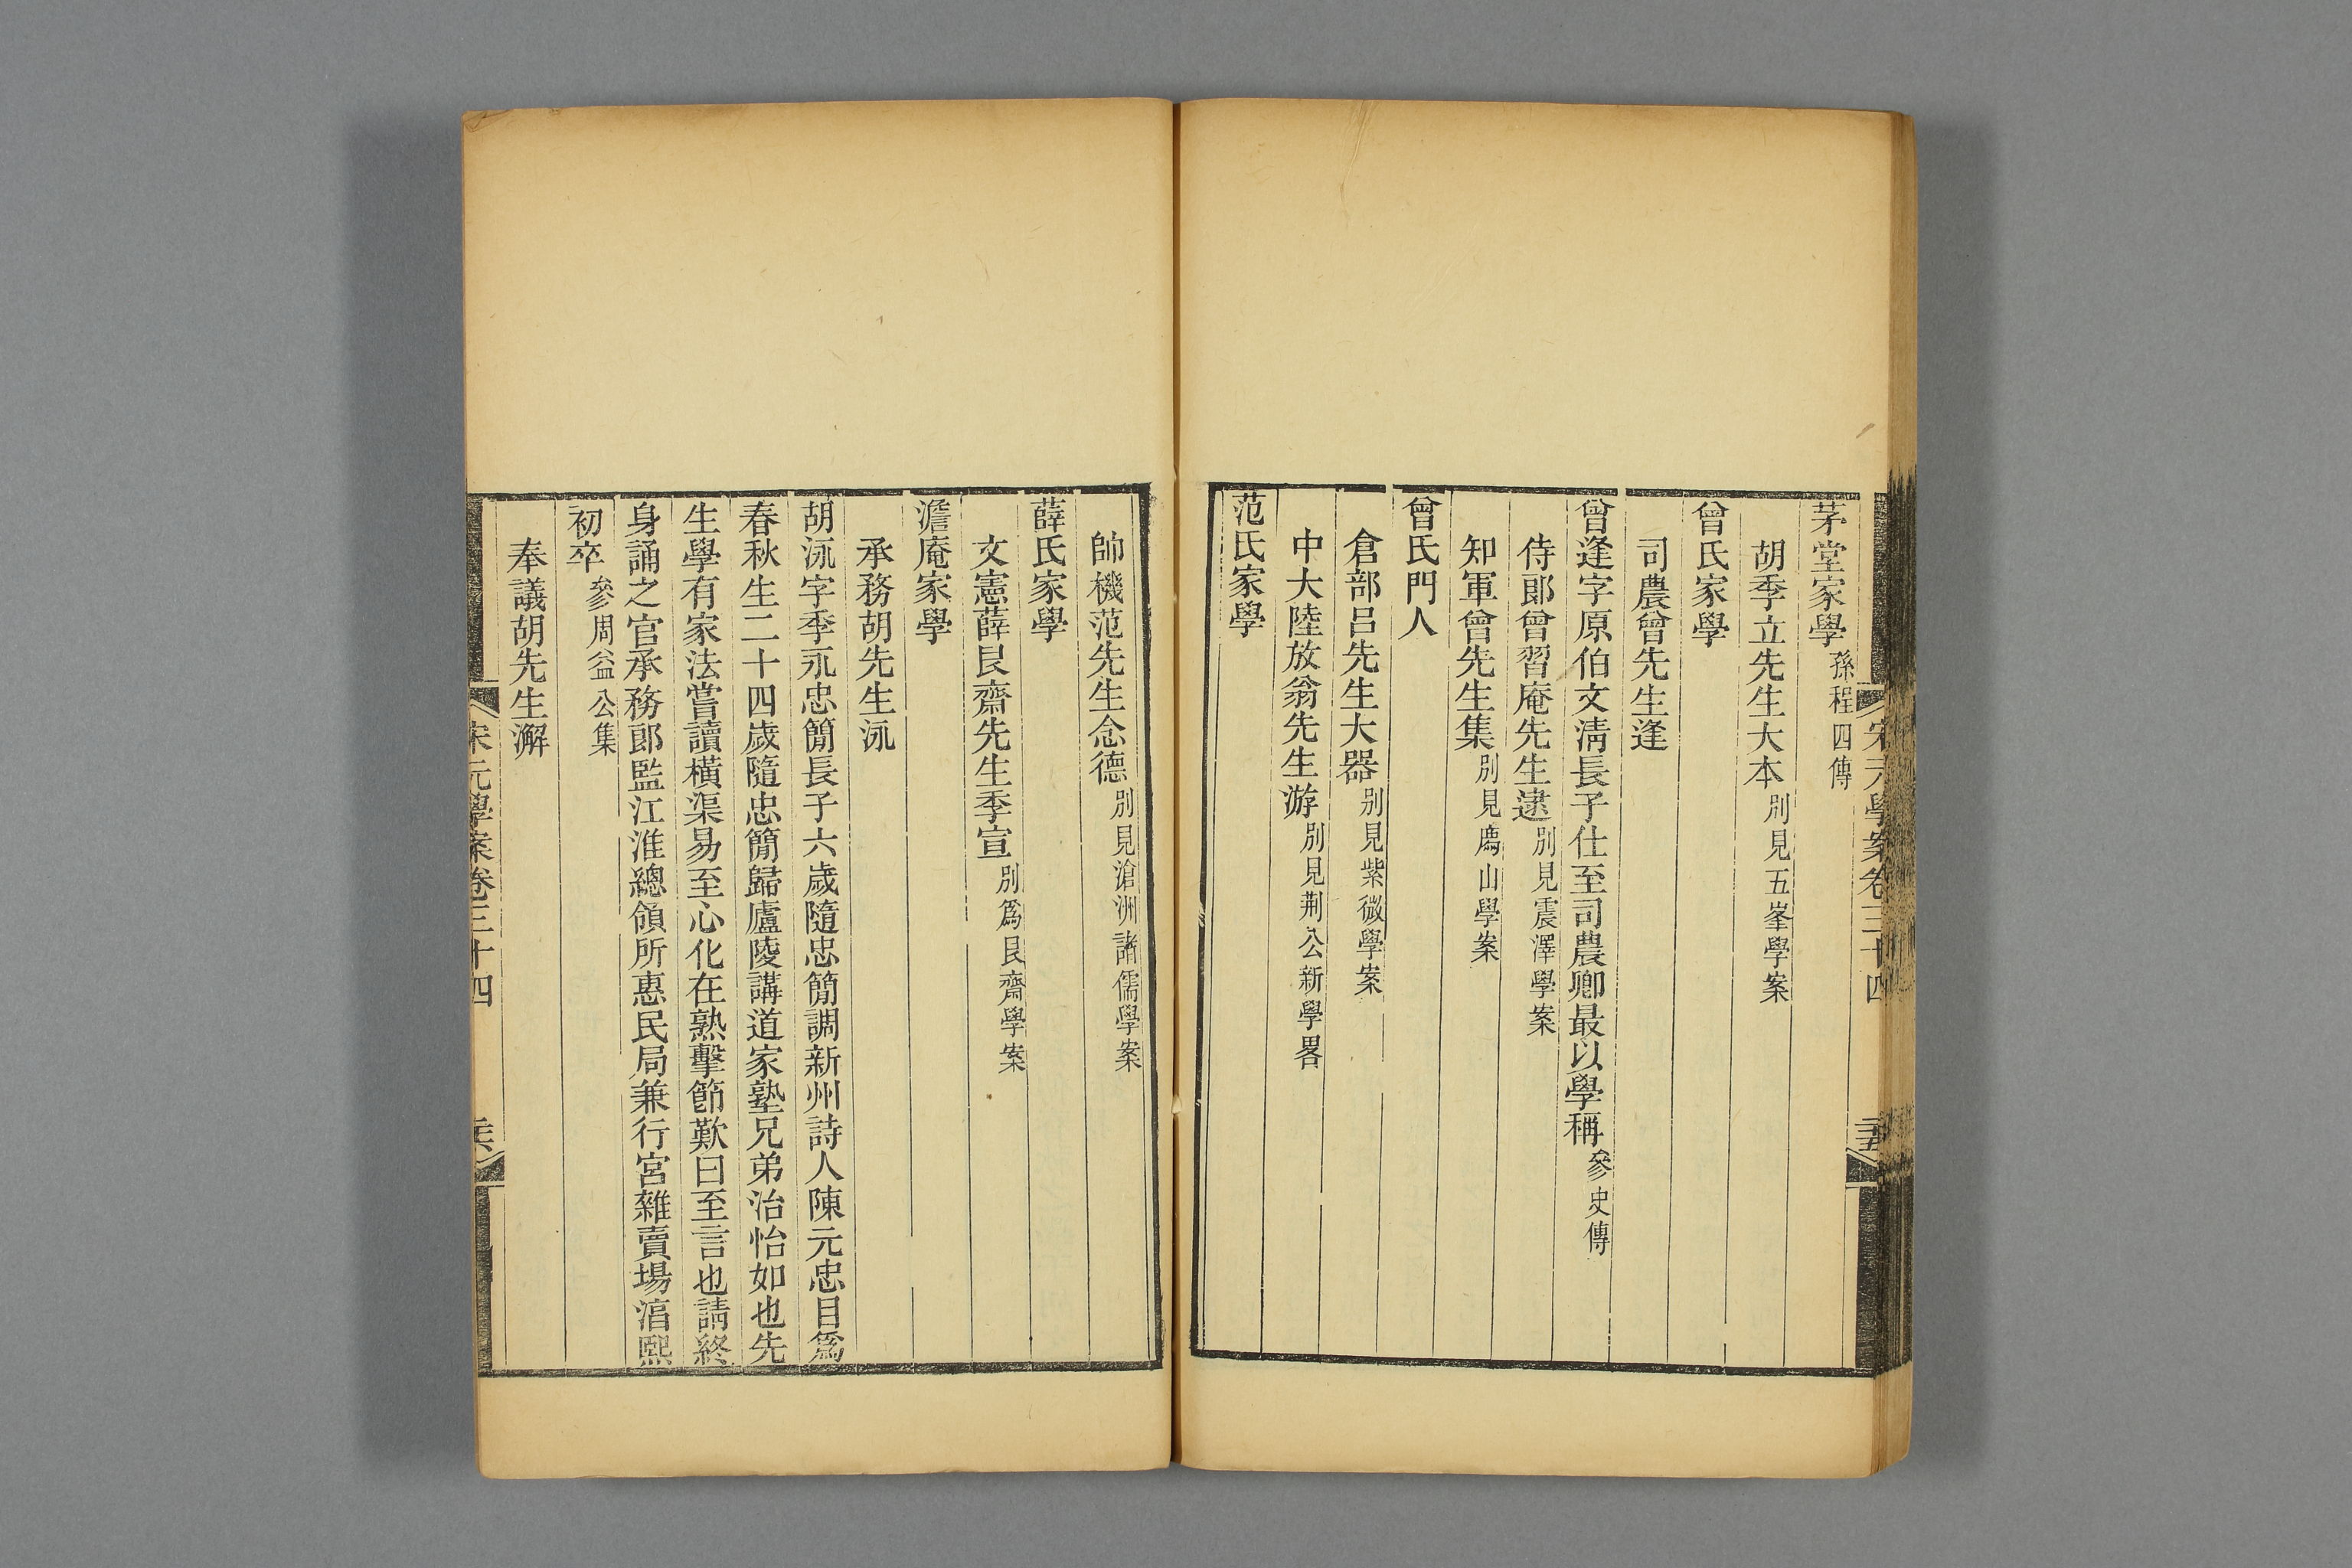 宋元學案卷三十四
茅堂家學孫程四傳
胡季立先生大本別見五峯學案
曾氏家學
司農曾先生逢
曾逢字原伯文淸長子仕至司農卿最以學稱參史傳
侍郎曾習庵先生逮別見震澤學案
知軍曾先生集別見廌山學案
曾氏門人
倉部呂先生大器別見紫微學案
中大陸放翁先生游別見荆公新學畧
范氏家學
帥機范先生念德別見滄洲諸儒學案
薛氏家學
文憲薛艮齋先生季宣別爲艮齋學案
澹庵家學
承務胡先生泳
胡泳字季永忠簡長子六歲隨忠簡謫新州詩人陳元忠目爲
春秋生二十四歲隨忠簡歸廬陵講道家塾兄弟治怡如也先
生學有家法嘗讀橫渠易至心化在熟擊節歎曰至言也請終
身誦之官承務郎監江淮總領所惠民局兼行宮雜賣場淳熙
初卒參周益公集
奉議胡先生澥
宋元學案卷三十四